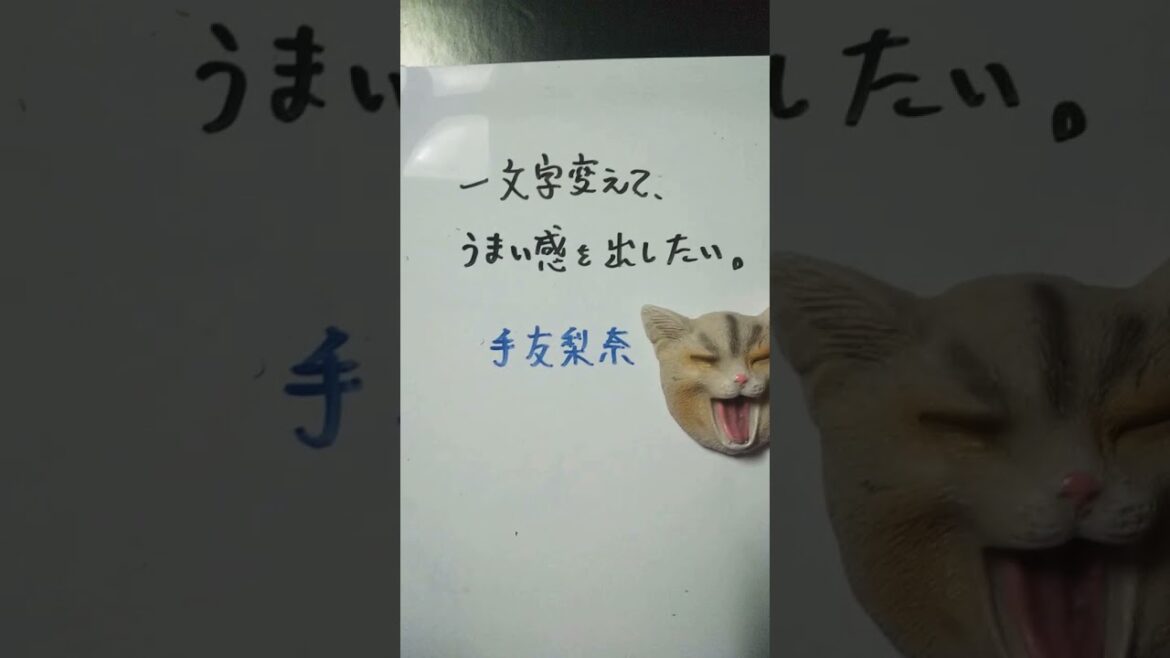 一文字変えて、
うまい感を出したい。
手友梨奈